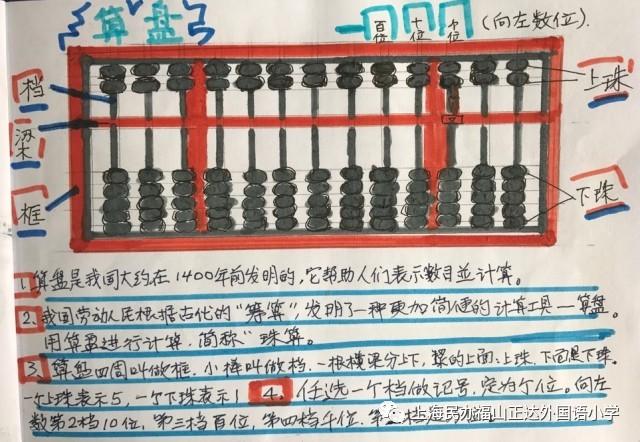 算盘
百位 十位 个位 (向左数位).
档
上珠
梁
框
下珠
1. 算盘是我国大约在1400年前发明的,它帮助人们表示数目並计算。
2. 我国劳动人民根据古代的“筹算”,发明了一种更加简便的计算工具—算盘。
用算盘进行计算.简称“珠算。
3、算盘四周叫做框.小棒叫做档.一根横梁分上下,梁的上面:上珠.下面是下珠.
一个上珠表示5,一个下珠表示1 4、任选一个档做记号,定为个位。向左
数第2档10位,第三档百位,第四档千位.第
上海民办福山正达外国语小学